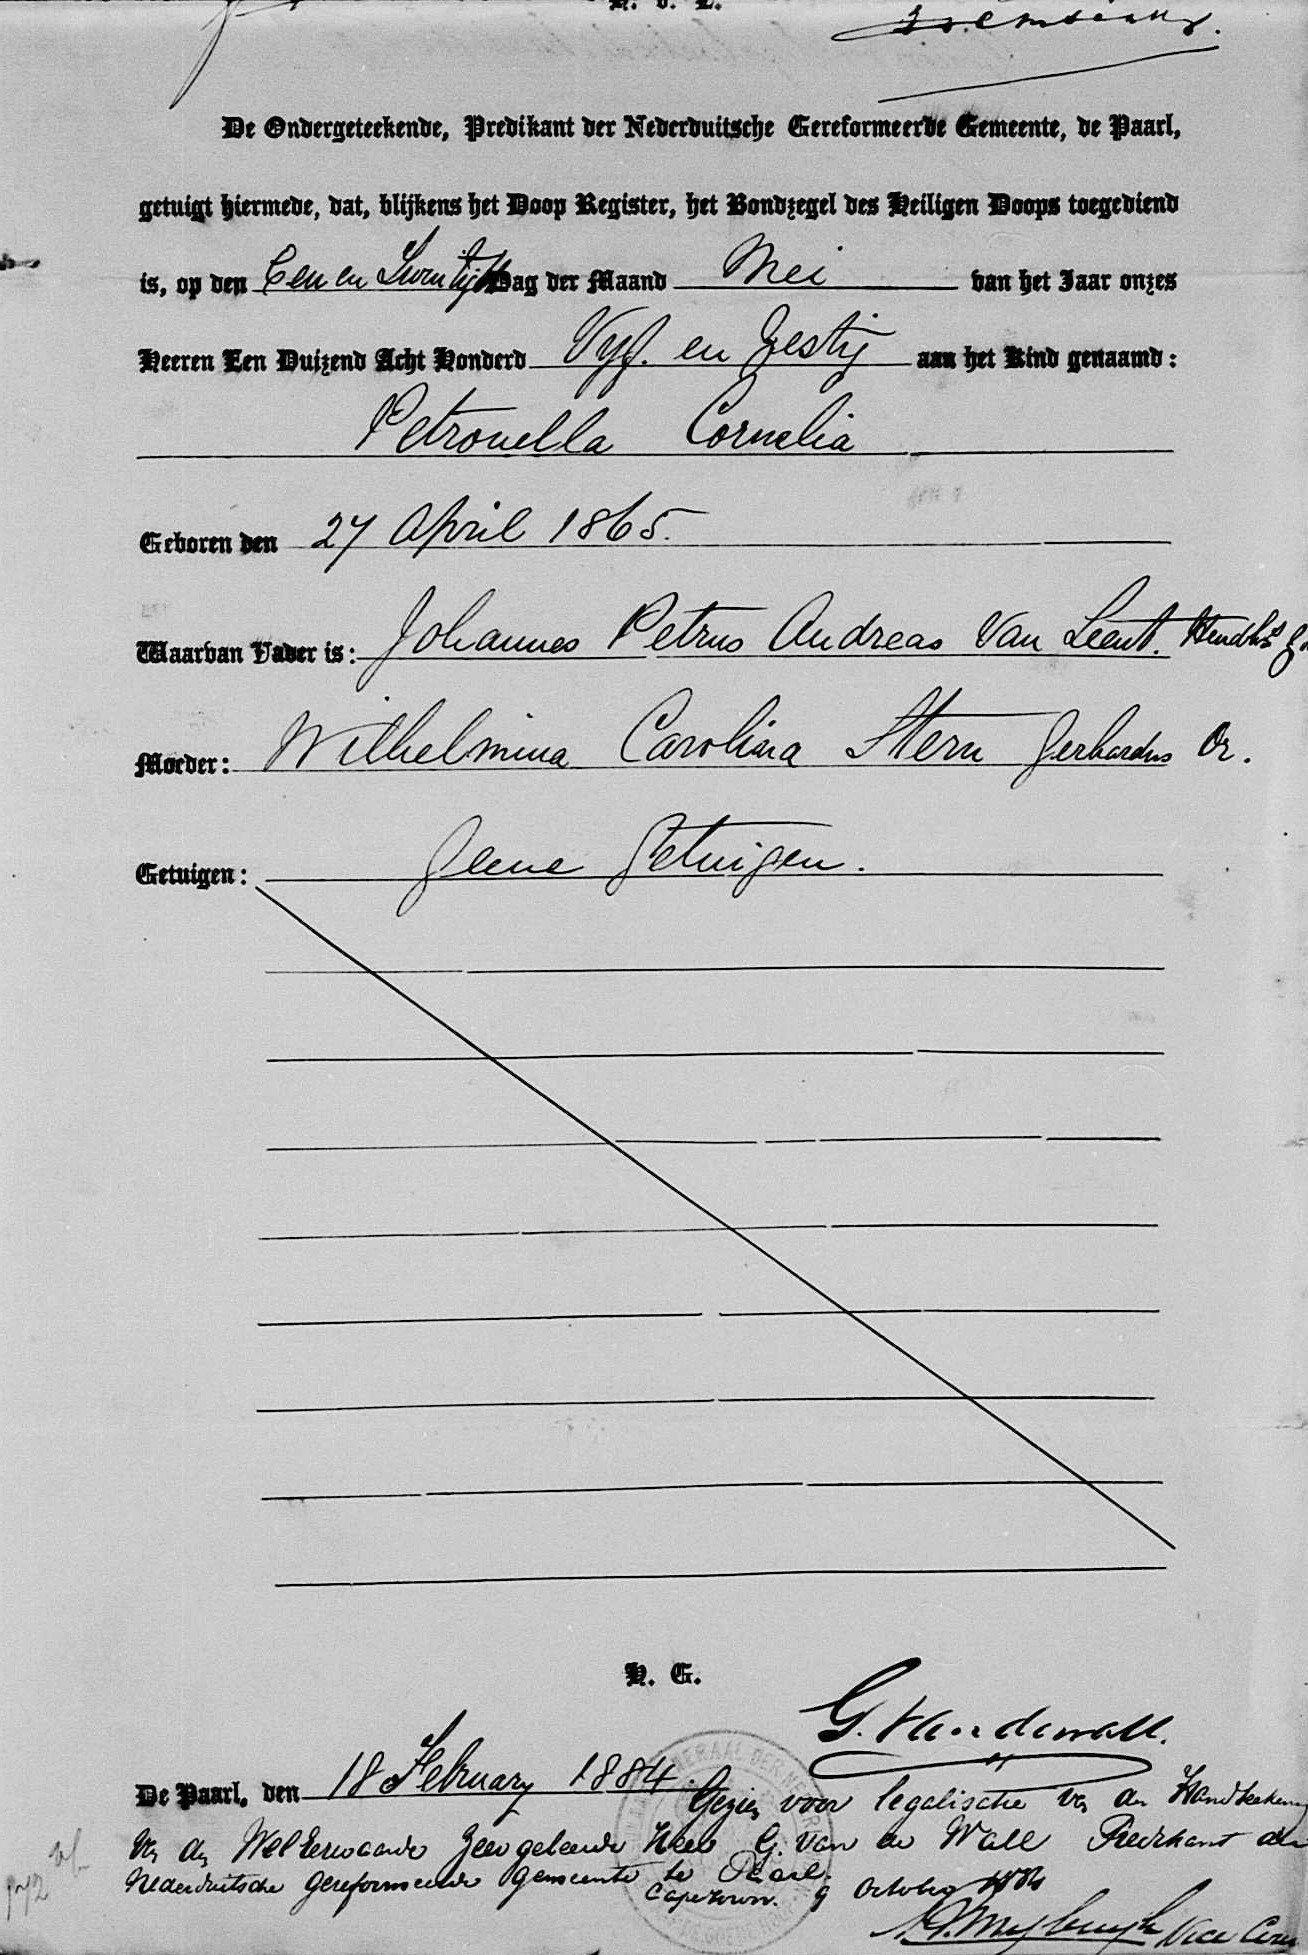 De Ondergeteekende, Predikant der Nederduitsche Gereformeerde Gemeente, de Paarl,
getuigt hiermede, dat, blijkens het Doop Register, het Bondzegel des Heiligen Doops toegediend
is, op den Een en Twintigste Dag der Maand Mei van het Jaar onzes
Heeren Een Duizend Acht Honderd Vyf en Zestig aan het Kind genaamd:
Petronella Cornelia
Geboren den 27 April 1865.
Waarvan Vader is: Johannes Petrus Andreas Van Leent.
Moeder: Wilhelmina Carolina Stern Gerhardus Dr.
Getuigen: Geene Getuigen.
N. G.
G. Van de Wall.
De Paarl, den 18 February 1884.
Gezien voor legalisatie van de Handteekening
Van den WelEerwaarde Zeergeleerde Heer G. van de Wall Predikant der
Nederduitsche Gereformeerde Gemeente te Paarl.
Capetown. 9 October 1884
Vice Cons